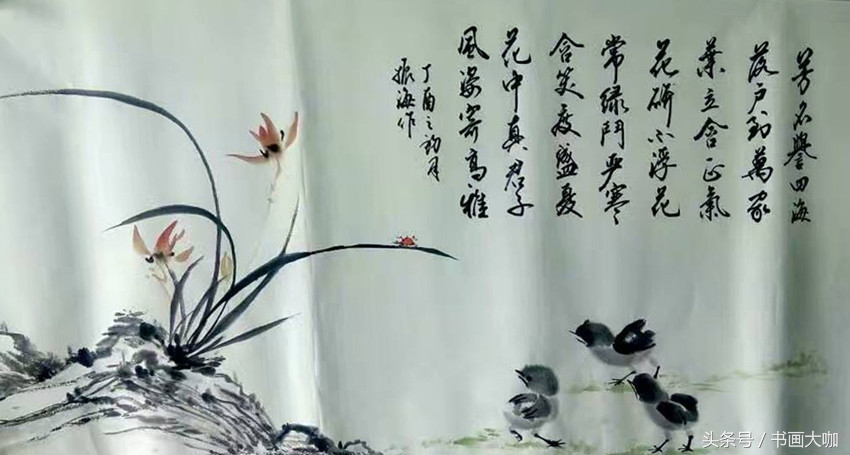 芳名譽四海
落户到萬家
葉立含正氣
花研不浮花
常緑鬥严寒
含笑度盛夏
花中真君子
風姿寄高雅
丁酉之初月
振海作
头条号 / 书画大咖